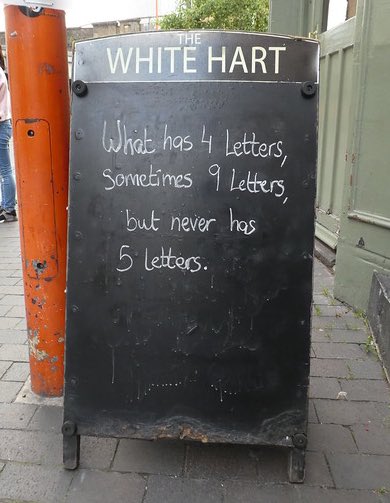 THE
WHITE HART
What has 4 Letters,
Sometimes 9 Letters,
but never has
5 letters.